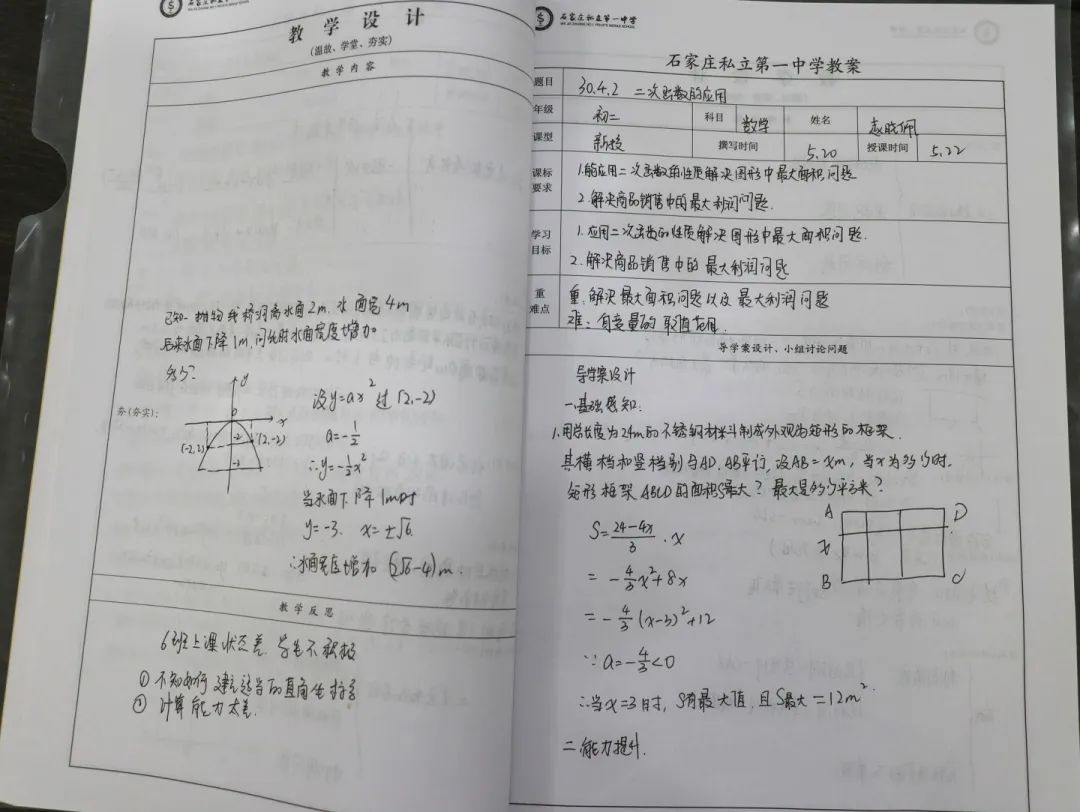 石家庄私立第一中学
教学设计
(温故、学堂、夯实)
教学内容
已知一抛物线桥洞离水面2m,水面宽4m
后来水面下降1m,问此时水面宽度增加
多少?
夯(夯实):
y
0
x
(-2,2)
(2,-2)
-2
-3
设y=ax² 过(2,-2)
a=-1/2
∴y=-1/2x²
当水面下降1m时
y=-3. x=±√6.
∴水面宽度增加(2√6-4)m.
教学反思
6班上课状态差.学生不积极
① 不知如何建立适当的直角坐标系
② 计算能力太差.
石家庄私立第一中学
石家庄私立第一中学教案
题目 30.4.2 二次函数的应用
年级 初二 科目 数学 姓名 赵晓
课型 新授 撰写时间 5.20 授课时间 5.22
课标要求
1.能应用二次函数的性质解决图形中最大面积问题
2.解决商品销售中的最大利润问题.
学习目标
1.应用二次函数的性质解决图形中最大面积问题.
2.解决商品销售中的最大利润问题
重难点
重:解决最大面积问题以及最大利润问题
难:自变量的取值范围.
导学案设计、小组讨论问题
导学案设计
一.基础感知:
1.用总长度为24m的不锈钢材料制成外观为矩形的框架.
其横档和竖档别与AD.AB平行,设AB=xm,当x为多少时.
矩形框架ABCD的面积S最大?最大是多少平方米?
A D
x
B C
S=(24-4x)/3·x
=-4/3x²+8x
=-4/3(x-3)²+12
∵a=-4/3<0
∴当x=3时,S有最大值,且S最大=12m².
二.能力提升.